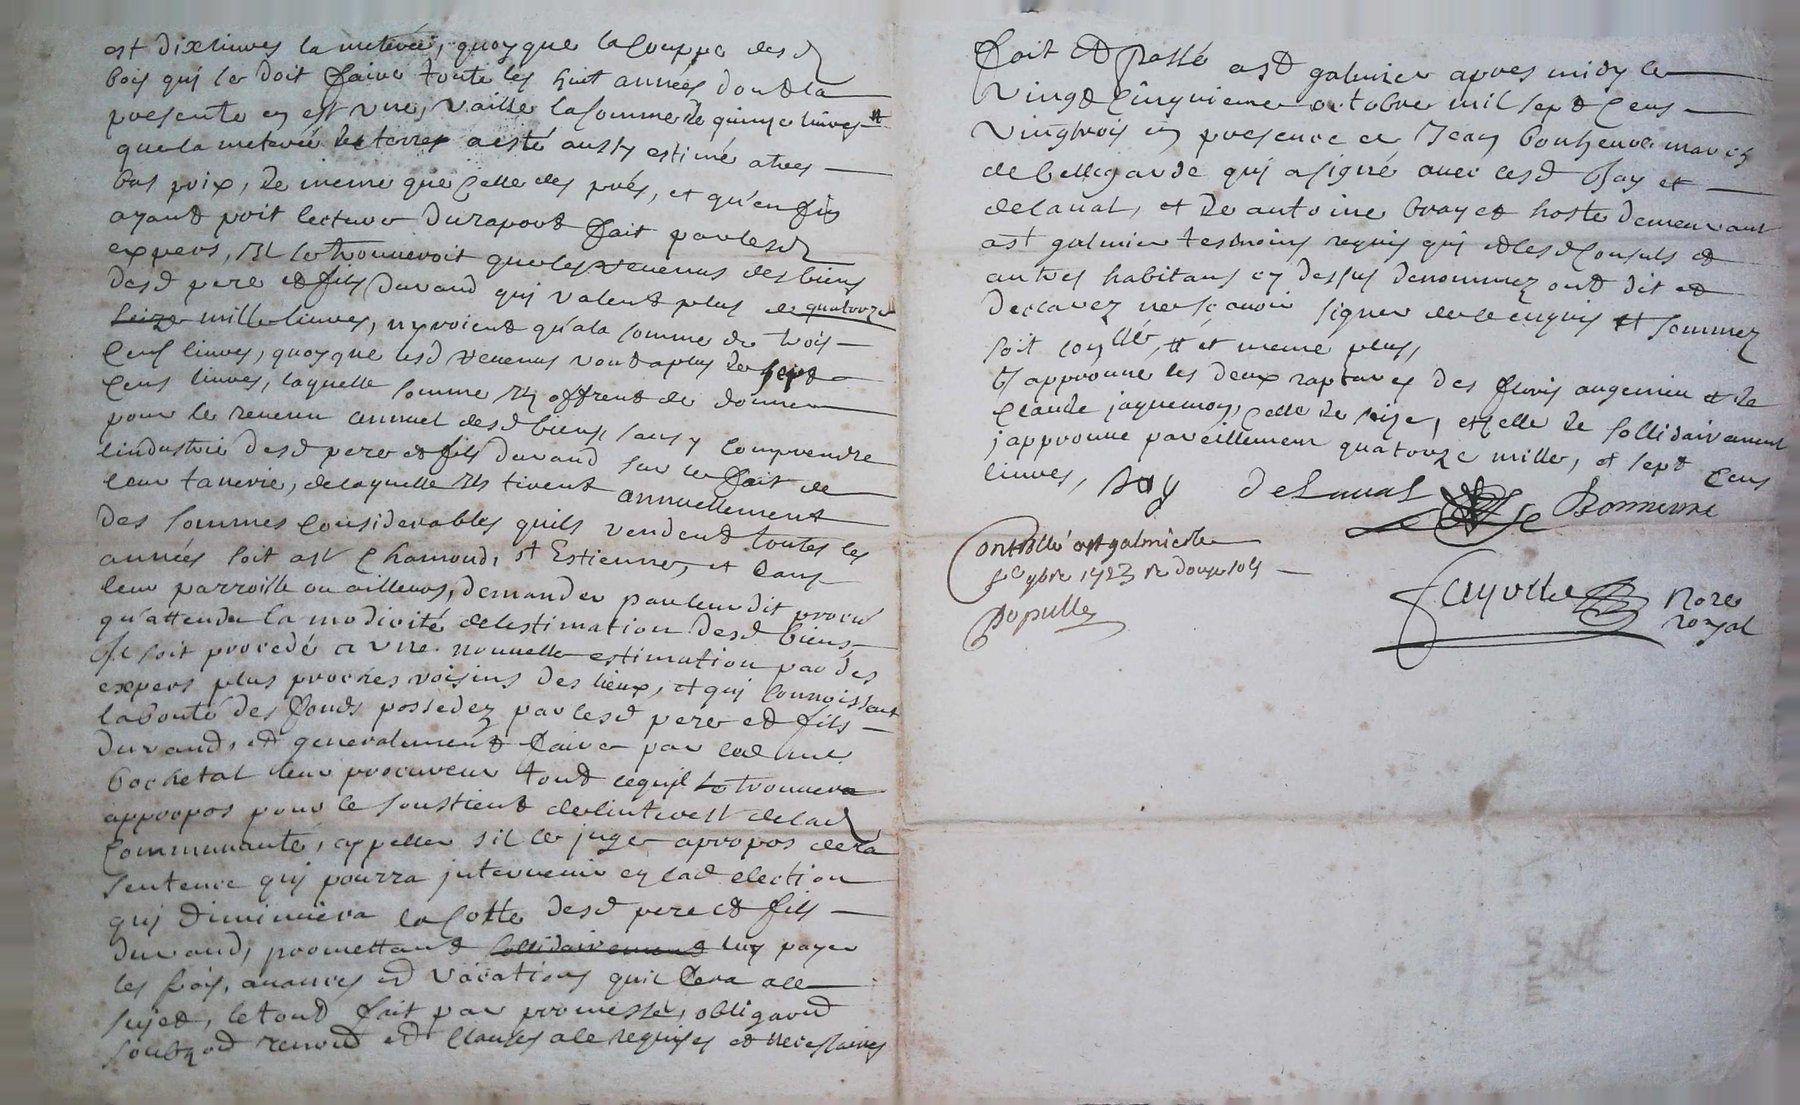 est dix livres la meterée, quoyque la Couppe desd
bois qui se doit faire toute les huit années dont la
presente en est une, vaille la somme de quinze livres #
que la meterée de terres a esté aussy estimé a tres
bas prix, de meme que Celle des prés, et qu'enfin
ayant prit lecture du raport fait par lesd
expers, Il se trouveroit que les revenus des biens
desd pere et fils Durand qui valent plus de quatorze
seize mille livres, n'yroient qu'a la somme de trois
Cens livres, quoyque lesd revenus vont a plus de sept
Cens livres, laquelle somme Ils offrent de donner
pour le revenu annuel desd biens, sans y Comprendre
lindustrie desd pere et fils Durand sur le fait de
leur tanerie, de laquelle Ils tirent annuellement
des sommes Considerables quils vendent toutes les
années soit a st Chamond, st Estienne, et dans
leur parroisse ou ailleurs, demander par leur dit procur
qu'attendu la modicité de lestimation desd biens,
Il soit procedé a une nouvelle estimation par des
expers plus proches voisins des lieux, et qui Connoissent
la bonté des fonds possedez par lesd pere et fils
Durand, et generalement faire par led me
bochetal leur procureur tout ce qu'il trouvera
appropos pour le soustient de linterest de lad
Communauté, appeller s'il le juge apropos de la
sentence qui pourra intervenir en lad election
qui diminuera la Cotte desd pere et fils
Durand, promettant sollidairement luy payer
les frais, avances et vacations qu'il fera a ce
sujet, le tout fait par promesse, obligaond
soubzod renond et Clauses a ce requises et necessaires
Fait et passé a st galmier apres midy le
vingt Cinquieme octobre mil sept Cens
vingt trois en presence de Jean bonheure march
de bellegarde qui a signé avec lesd Bay et
delaval, et de antoine bray et hoste demeurant
a st galmier tesmoins requis qui et lesd Consuls et
autres habitans cy dessus denommez ont dit et
declarez ne sçavoir signer de ce enquis et sommez
soit con lle, # et meme plus,
J'approuve les deux ratures des fleuris augenieu et de
Claude jaquemon, Celle de seize, et Celle de sollidairement
j'approuve pareillement quatorze mille, et sept Cens
livres, Bay DeLaval Bonneure
Controllé a st galmier le
9bre 1723 R douze sols
Populle
Fayolle Nore
royal